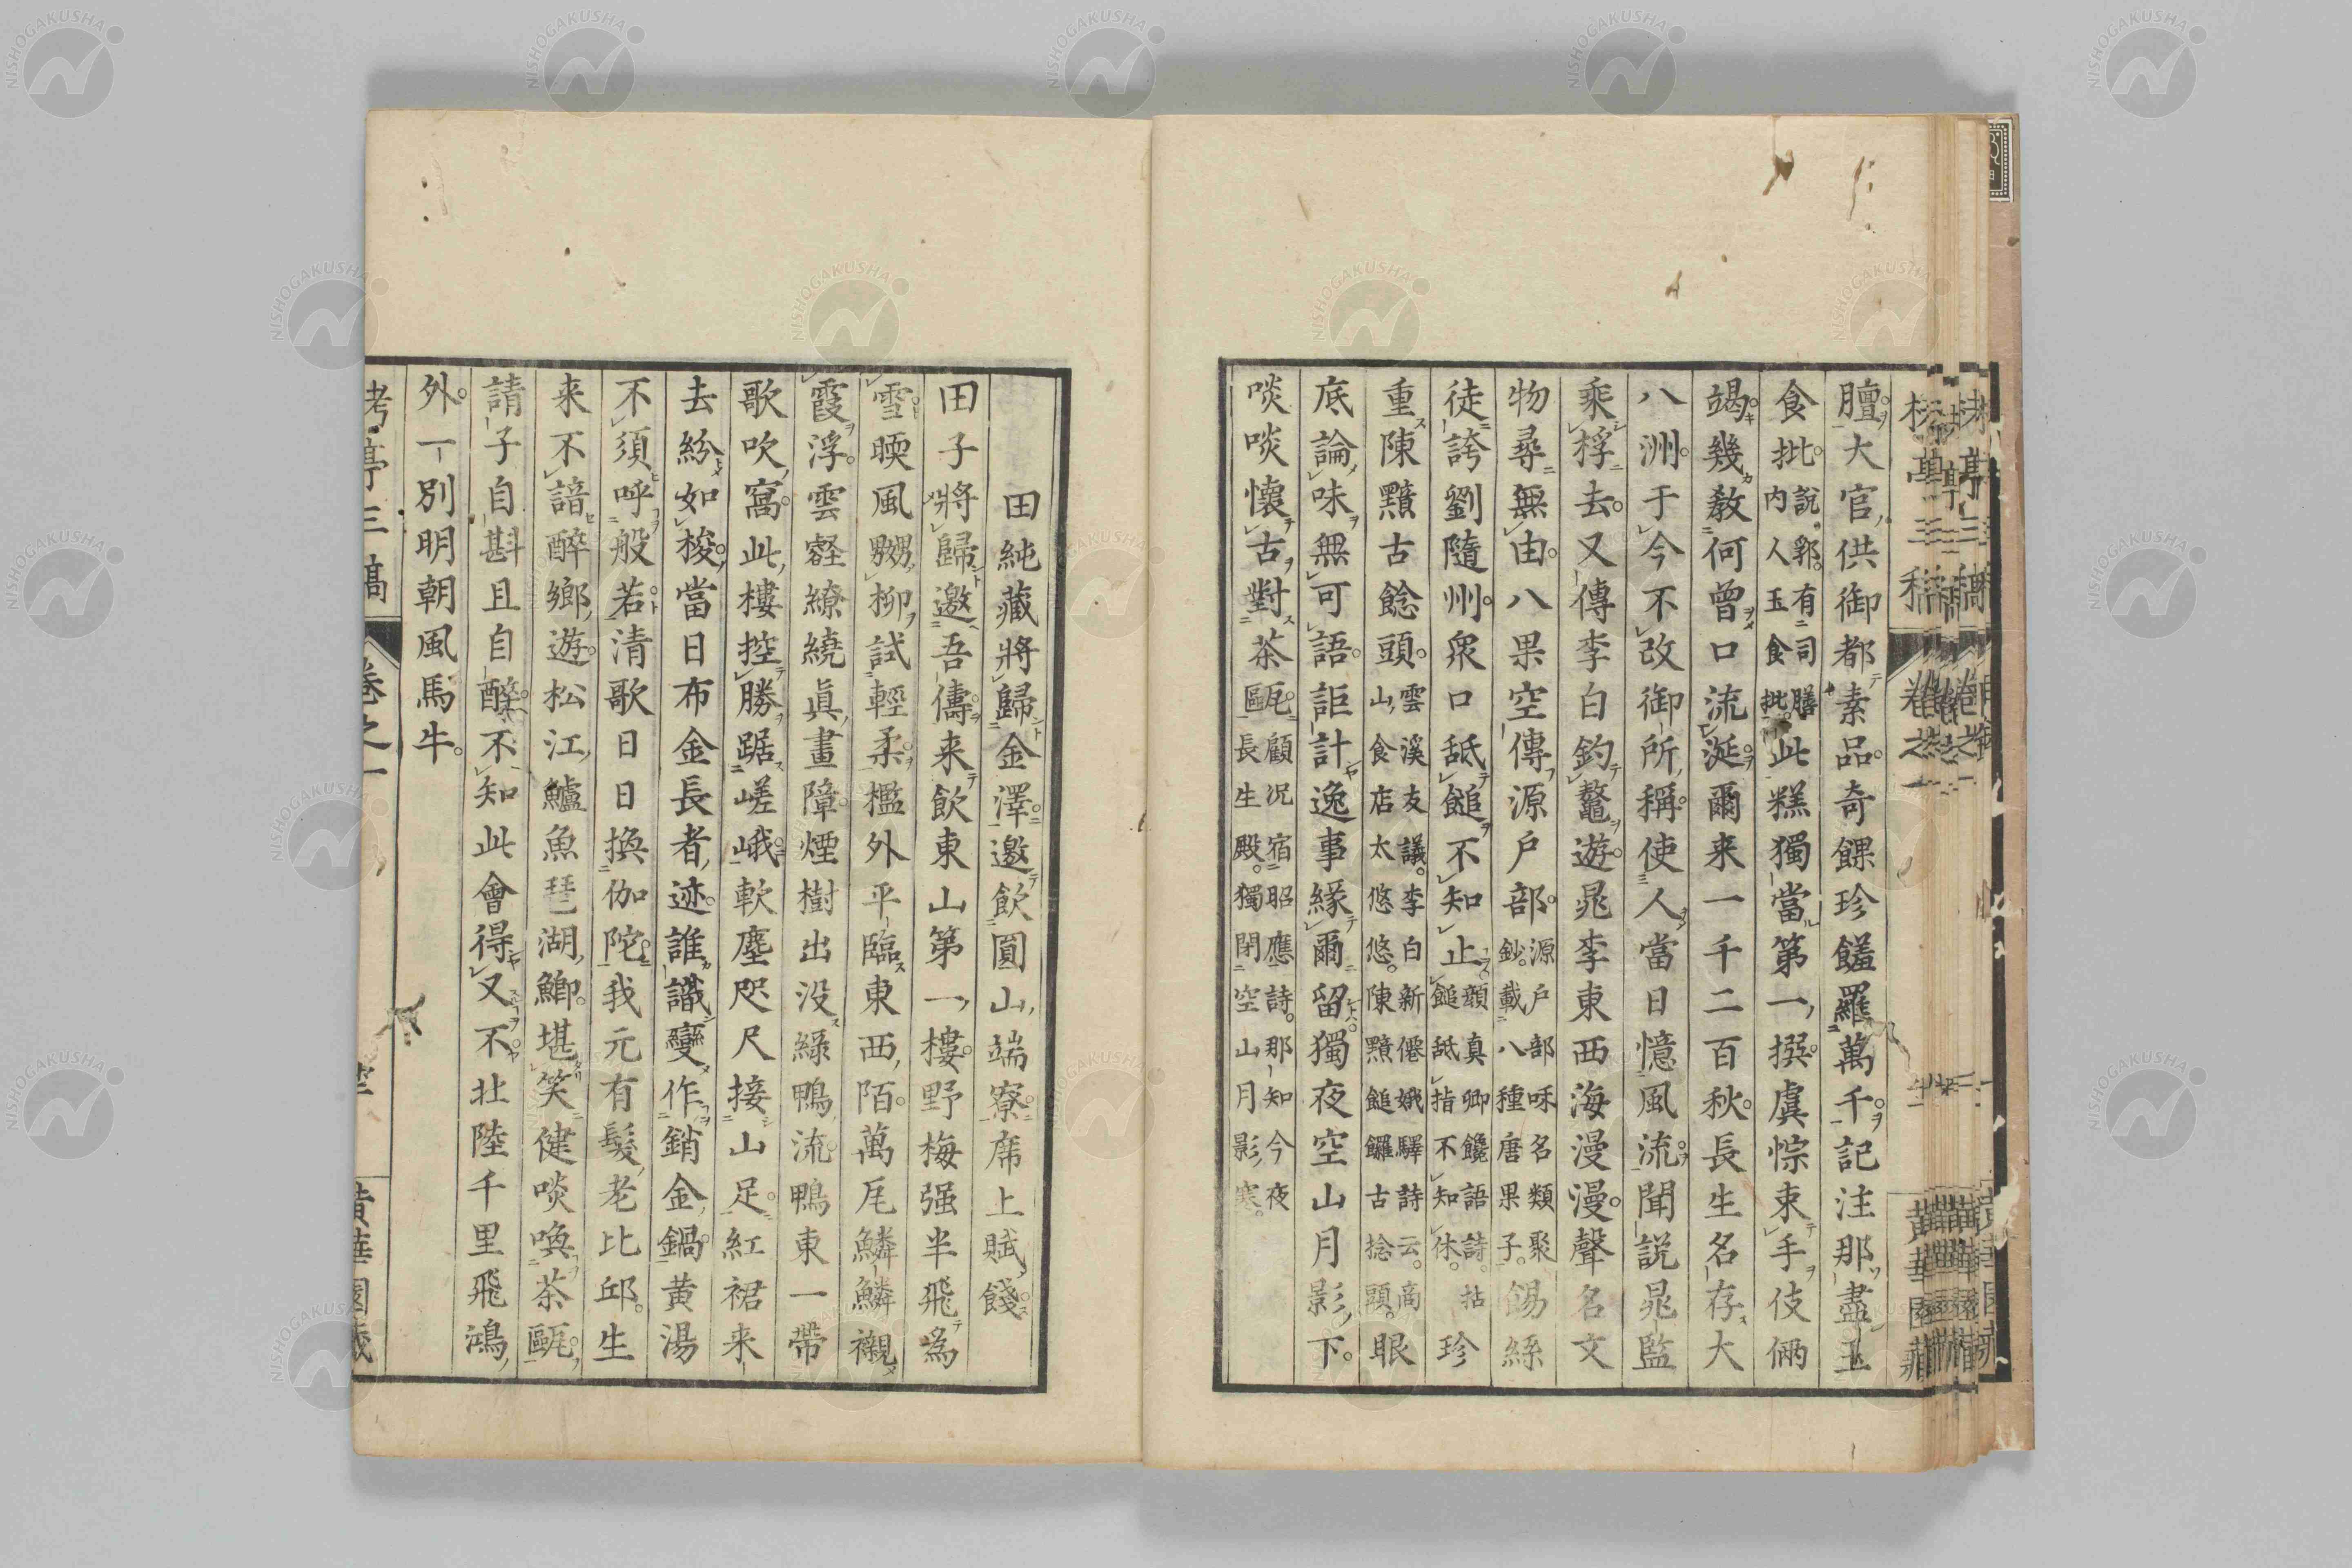 膻大官供御都素品奇餜珍饈羅萬千記注那盡王
食批說郛有司膳内人玉食批此糕獨當第一撰虞悰束手伎倆
竭幾教何曾口流涎爾来一千二百秋長生名存大
八洲于今不改御所稱使人當日憶風流聞説晁監
乘桴去又傳李白釣鼇遊晁李東西海漫漫聲名文
物尋無由八果空傳源戶部源戶部咊名類聚鈔載八種唐果子餳絲
徒誇劉隨州衆口舐䭔不知止顏真卿饞語詩拈䭔舐指不知休珍
重陳黰古餕頭雲溪友議李白新僊娥驛詩云商山食店太悠悠陳黰䭔饠古捻頭眼
底論味無可語詎計逸事緣爾留獨夜空山月影下
啖啖懷古對茶甌顧况宿昭應詩那知今夜長生殿獨閉空山月影寒
田純藏將歸金澤邀飲圓山端寮席上賦餞
田子將歸邀吾儔来飲東山第一樓野梅强半飛為
雪暖風嬲柳試輕柔檻外平臨東西陌萬瓦鱗鱗襯
霞浮雲壑繚繞眞畫障煙樹出没綠鴨流鴨東一帶
歌吹窩此樓控勝踞嵯峨軟塵咫尺接山足紅裙来
去紛如梭當日布金長者迹誰識變作銷金鍋黄湯
不須呼般若清歌日日換伽陀我元有髮老比邱生
来不諳醉鄉遊松江鱸魚琵湖鯽堪笑健啖喚茶甌
請子自斟且自醉不知此會得又不北陸千里飛鴻
外一別明朝風馬牛
亭三稿
卷之一